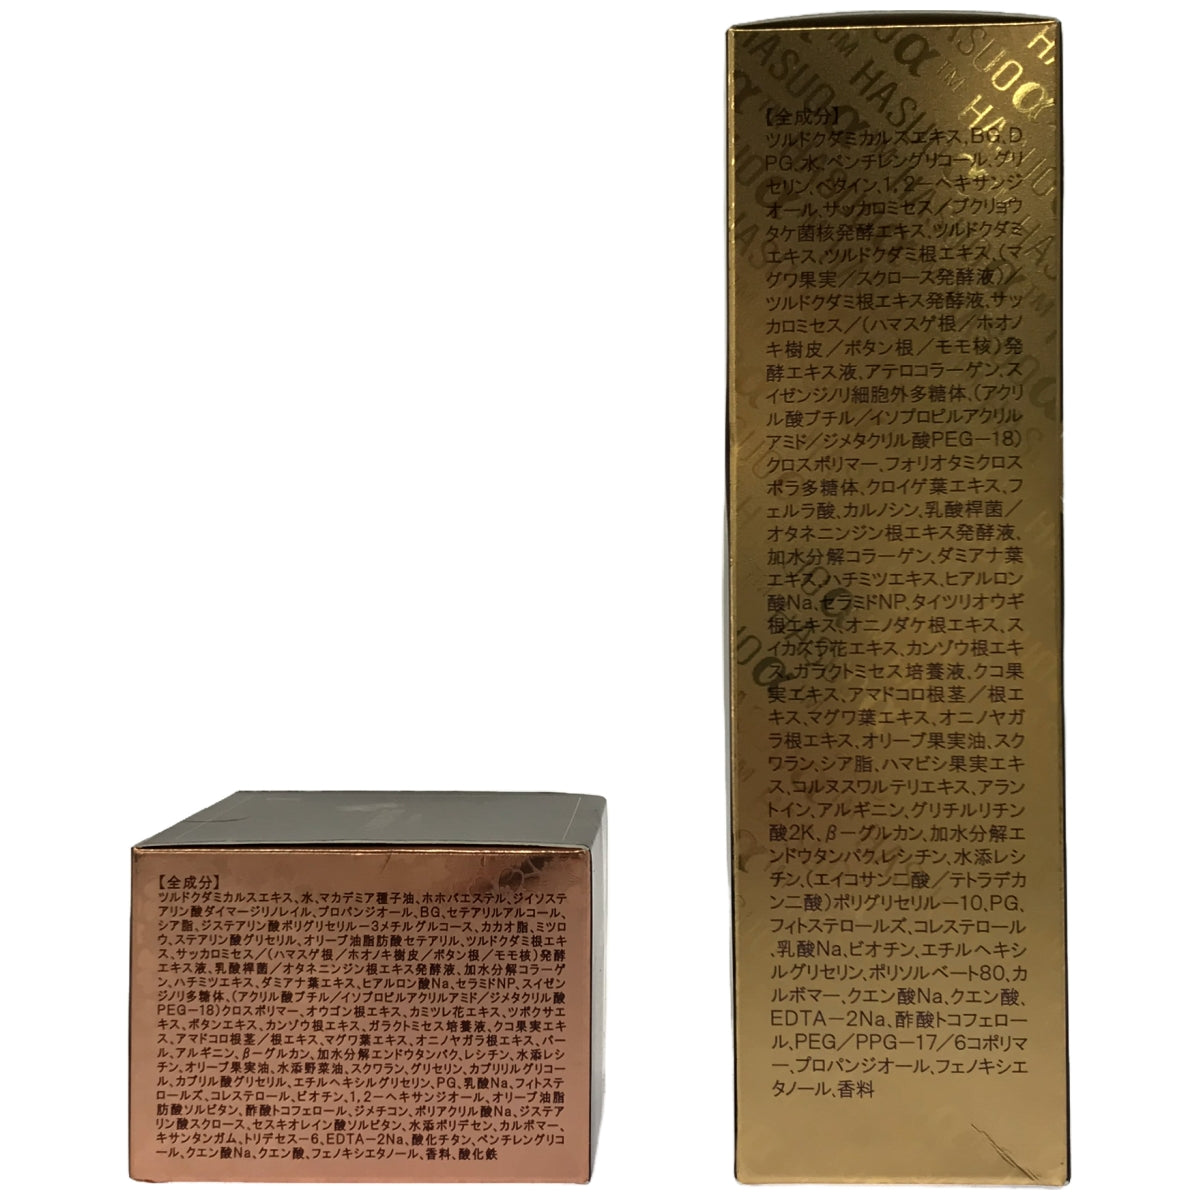 【全成分】
ツルドクダミカルスエキス、水、マカデミア種子油、ホホバエステル、ジイソステ
アリン酸ダイマージリノレイル、プロパンジオール、BG、セテアリルアルコール、
シア脂、ジステアリン酸ポリグリセリル－3メチルグルコース、カカオ脂、ミツロ
ウ、ステアリン酸グリセリル、オリーブ油脂肪酸セテアリル、ツルドクダミ根エキ
ス、サッカロミセス／(ハマスゲ根／ホオノキ樹皮／ボタン根／モモ核)発酵
エキス液、乳酸桿菌／オタネニンジン根エキス発酵液、加水分解コラーゲ
ン、ハチミツエキス、ダミアナ葉エキス、ヒアルロン酸Na、セラミドNP、スイゼン
ジノリ多糖体、(アクリル酸ブチル／イソプロピルアクリルアミド／ジメタクリル酸
PEG－18)クロスポリマー、オウゴン根エキス、カミツレ花エキス、ツボクサエ
キス、ボタンエキス、カンゾウ根エキス、ガラクトミセス培養液、クコ果実エキ
ス、アマドコロ根茎／根エキス、マグワ葉エキス、オニノヤガラ根エキス、パー
ル、アルギニン、β－グルカン、加水分解エンドウタンパク、レシチン、水添レシ
チン、オリーブ果実油、水添野菜油、スクワラン、グリセリン、カプリリルグリコー
ル、カプリル酸グリセリル、エチルヘキシルグリセリン、PG、乳酸Na、フィトステ
ロールズ、コレステロール、ビオチン、1，2－ヘキサンジオール、オリーブ油脂
肪酸ソルビタン、酢酸トコフェロール、ジメチコン、ポリアクリル酸Na、ジステアリ
ン酸スクロース、セスキオレイン酸ソルビタン、水添ポリデセン、カルボマー、
キサンタンガム、トリデセス－6、EDTA－2Na、酸化チタン、ペンチレングリコ
ール、クエン酸Na、クエン酸、フェノキシエタノール、香料、酸化鉄
【全成分】
ツルドクダミカルスエキス、BG、D
PG、水、ペンチレングリコール、グリ
セリン、ベタイン、1，2－ヘキサンジ
オール、サッカロミセス／ブクリョウ
タケ菌核発酵エキス、ツルドクダミ
エキス、ツルドクダミ根エキス、(マ
グワ果実／スクロース発酵液)／
ツルドクダミ根エキス発酵液、サッ
カロミセス／(ハマスゲ根／ホオノ
キ樹皮／ボタン根／モモ核)発
酵エキス液、アテロコラーゲン、ス
イゼンジノリ細胞外多糖体、(アクリ
ル酸ブチル／イソプロピルアクリル
アミド／ジメタクリル酸PEG－18)
クロスポリマー、フォリオタミクロス
ポラ多糖体、クロイゲ葉エキス、フ
ェルラ酸、カルノシン、乳酸桿菌／
オタネニンジン根エキス発酵液、
加水分解コラーゲン、ダミアナ葉
エキス、ハチミツエキス、ヒアルロン
酸Na、セラミドNP、タイツリオウギ
根エキス、オニノダケ根エキス、ス
イカズラ花エキス、カンゾウ根エキ
ス、ガラクトミセス培養液、クコ果
実エキス、アマドコロ根茎／根エ
キス、マグワ葉エキス、オニノヤガ
ラ根エキス、オリーブ果実油、スク
ワラン、シア脂、ハマビシ果実エキ
ス、コルヌスワルテリエキス、アラン
トイン、アルギニン、グリチルリチン
酸2K、β－グルカン、加水分解エ
ンドウタンパク、レシチン、水添レシ
チン、(エイコサン二酸／テトラデカ
ン二酸)ポリグリセリル－10、PG、
フィトステロールズ、コレステロール
、乳酸Na、ビオチン、エチルヘキシ
ルグリセリン、ポリソルベート80、カ
ルボマー、クエン酸Na、クエン酸、
EDTA－2Na、酢酸トコフェロー
ル、PEG／PPG－17／6コポリマ
ー、プロパンジオール、フェノキシエ
タノール、香料
HASUOα™